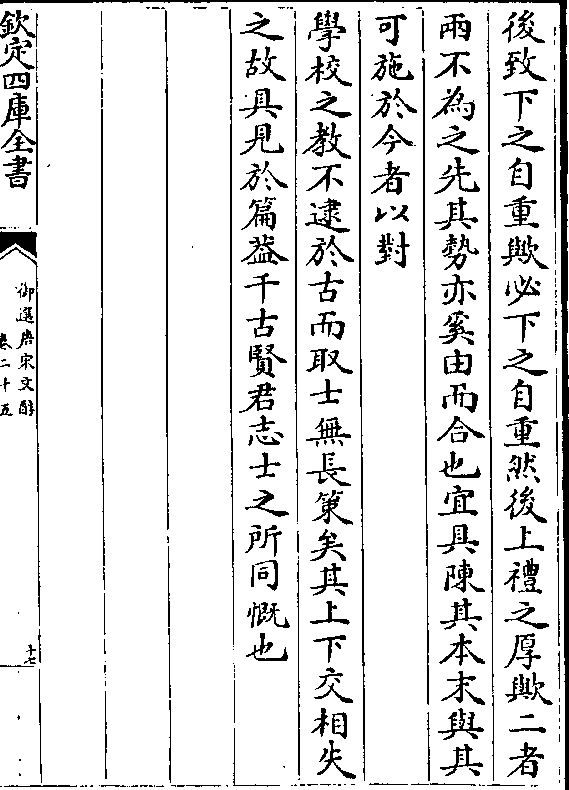 後致下之自重歟必下之自重然後上禮之厚歟二者
兩不為之先其勢亦奚由而合也宜具陳其本末與其
可施於今者以對
學校之教不逮於古而取士無長策矣其上下交相失
之故具見於篇葢千古賢君志士之所同慨也
欽定四庫全書
御選唐宋文醇
卷二十五
十七